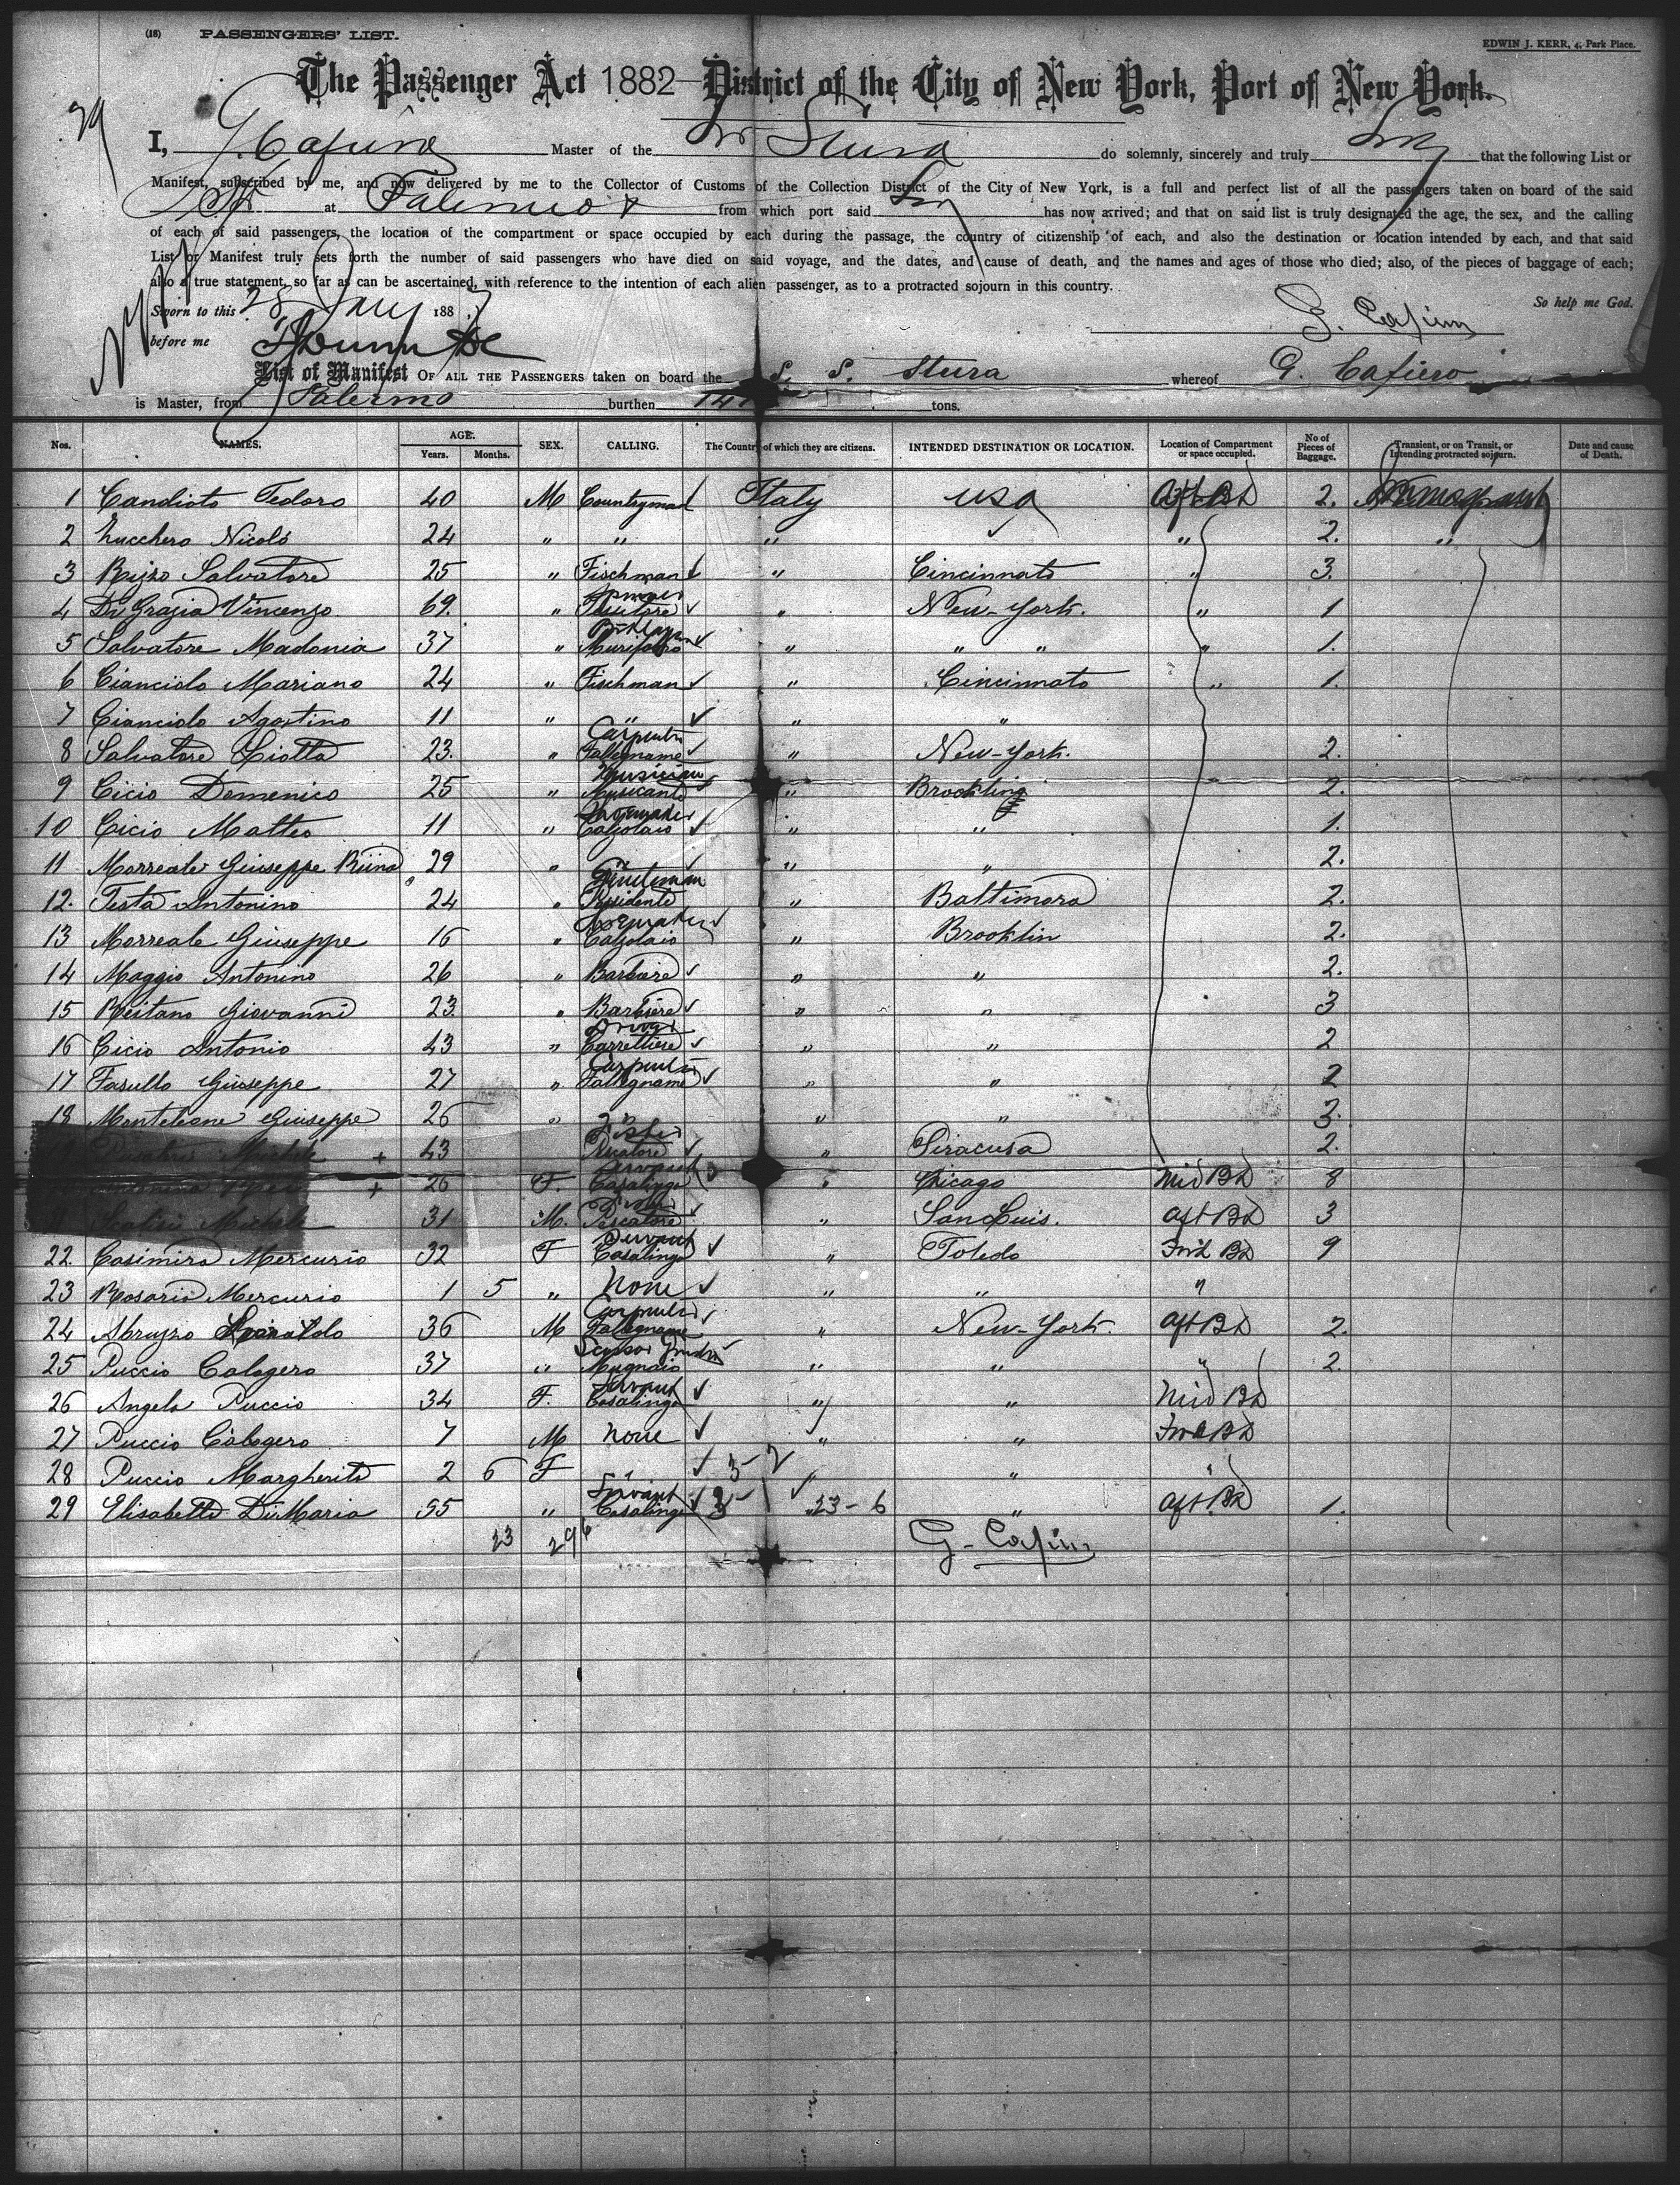 (18) PASSENGERS' LIST.
EDWIN J. KERR, 4, Park Place.
The Passenger Act 1882 District of the City of New York, Port of New York.
29
I, G. Cafiero Master of the Stura do solemnly, sincerely and truly that the following List or
Manifest, subscribed by me, and now delivered by me to the Collector of Customs of the Collection District of the City of New York, is a full and perfect list of all the passengers taken on board of the said
at Palermo from which port said has now arrived; and that on said list is truly designated the age, the sex, and the calling
of each of said passengers, the location of the compartment or space occupied by each during the passage, the country of citizenship of each, and also the destination or location intended by each, and that said
List or Manifest truly sets forth the number of said passengers who have died on said voyage, and the dates, and cause of death, and the names and ages of those who died; also, of the pieces of baggage of each;
also a true statement, so far as can be ascertained, with reference to the intention of each alien passenger, as to a protracted sojourn in this country.
So help me God.
Sworn to this 28 188
before me
G. Cafiero
List of Manifest OF ALL THE PASSENGERS taken on board the S. S. Stura whereof G. Cafiero
is Master, from Palermo burthen tons.
Nos. NAMES. AGE. Years. Months. SEX. CALLING. The Country of which they are citizens. INTENDED DESTINATION OR LOCATION. Location of Compartment or space occupied. No of Pieces of Baggage. Transient, or on Transit, or Intending protracted sojourn. Date and cause of Death.
1 Candioto Tedoro 40 M Countryman Italy USA Aft Bd 2.
2 Zucchero Nicolò 24 " " " " 2. "
3 Rizzo Salvatore 25 " Fischman " Cincinnato " 3.
4 Di Grazia Vincenzo 69. " " New-York. " 1
5 Salvatore Madonia 37 " " " " " 1.
6 Cianciolo Mariano 24 " Fischman " Cincinnato " 1.
7 Cianciolo Agostino 11 " " " "
8 Salvatore Giotta 23. " Carpenter Falegname " New-York. 2.
9 Cicio Domenico 25 " Musician Musicante " Brockling 2.
10 Cicio Matteo 11 " Shoemaker Calzolaio " " 1.
11 Morreale Giuseppe 29 " " " " 2.
12. Testa Antonino 24 " Gentleman " Baltimora 2.
13 Morreale Giuseppe 16 " Shoemaker Calzolaio " Brooklin 2.
14 Maggio Antonino 26 " Barbiere " " 2.
15 Reitano Giovanni 23. " Barbiere " " 3
16 Cicio Antonio 43 " Driver Carrettiere " " 2
17 Fasullo Giuseppe 27 " Carpenter Falegname " " 2
18 Monteleone Giuseppe 26 " " " " 3.
Michele + 43 Pescatore " Siracusa 2.
+ 26 F. Servant Casalinga " Chicago Mid Bd 8
Scalisi Michele 31 M. Pescatore " San Luis. Aft Bd 3
22. Casimira Mercurio 32 F Servant Casalinga " Toledo Fwd Bd 9
23 Rosaria Mercurio 1 5 " None " " "
24 Abruzzo 36 M Carpenter Falegname " New-York. Aft Bd 2.
25 Puccio Calogero 37 " Mugnaio " " " 2.
26 Angela Puccio 34 F. Servant Casalinga " " Mid Bd
27 Puccio Calogero 7 M None " " Fwd Bd
28 Puccio Margherita 2 6 F " " " "
29 Elisabetta Di Maria 55 " Servant Casalinga " 23-6 " Aft Bd 1.
23 29
G. Cafiero